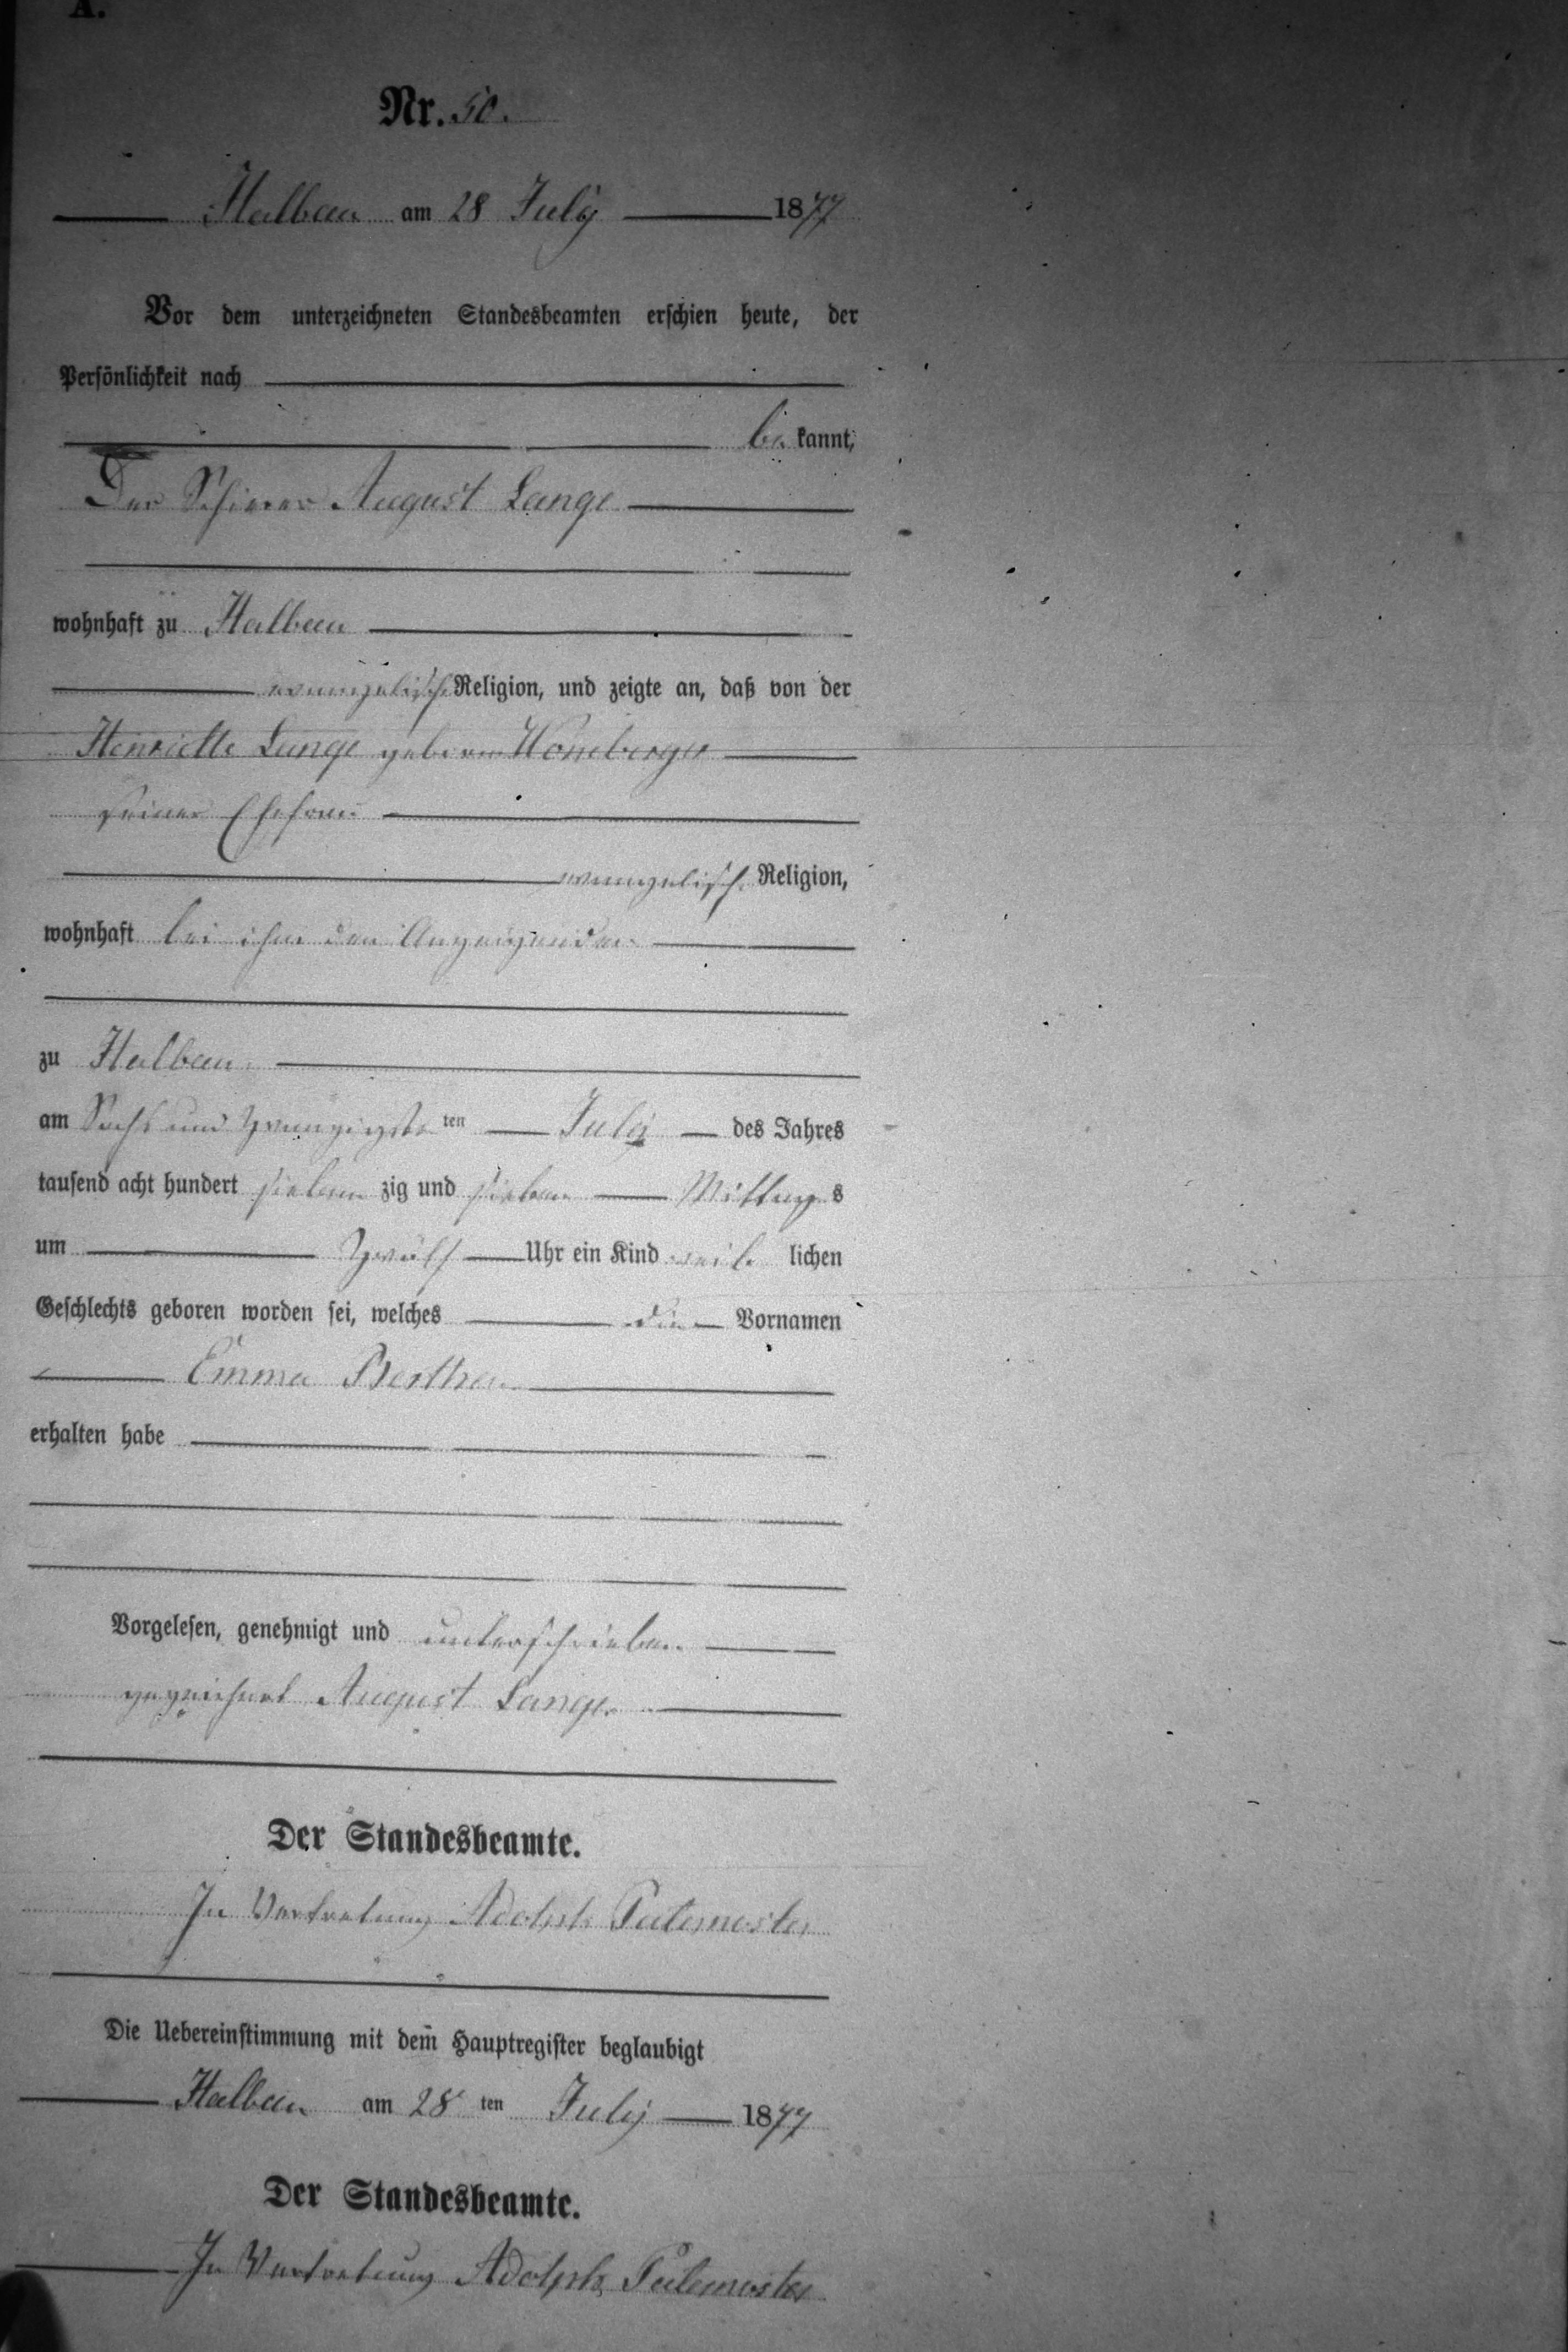 A.
Nr. 50.
Halbau am 28 July 1877
Vor dem unterzeichneten Standesbeamten erschien heute, der
Persönlichkeit nach
be kannt,
Der August Lange
wohnhaft zu Halbau
evangelisch Religion, und zeigte an, daß von der
Henriette Lange geboren
seiner Ehefrau
evangelisch Religion,
wohnhaft bei ihm den Anzeigenden
zu Halbau
am Sechs und zwanzigste ten July des Jahres
tausend acht hundert sieben zig und sieben Mittag s
um Zwölf Uhr ein Kind weib lichen
Geschlechts geboren worden sei, welches die Vornamen
Emma Bertha
erhalten habe
Vorgelesen, genehmigt und unterschrieben
gezeichnet August Lange
Der Standesbeamte.
In Vertretung Adolph
Die Uebereinstimmung mit dem Hauptregister beglaubigt
Halbau am 28 ten July 1877
Der Standesbeamte.
In Vertretung Adolph